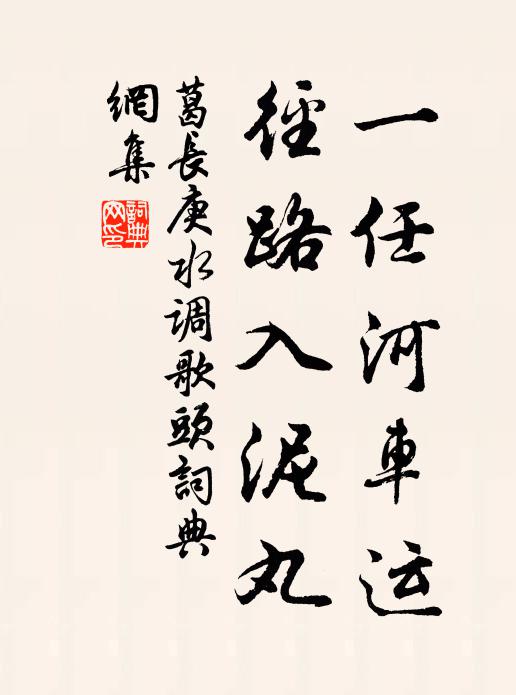 一任河車运
徑路入泥丸
葛長庚水调歌頭詞典
網集
詞典网印